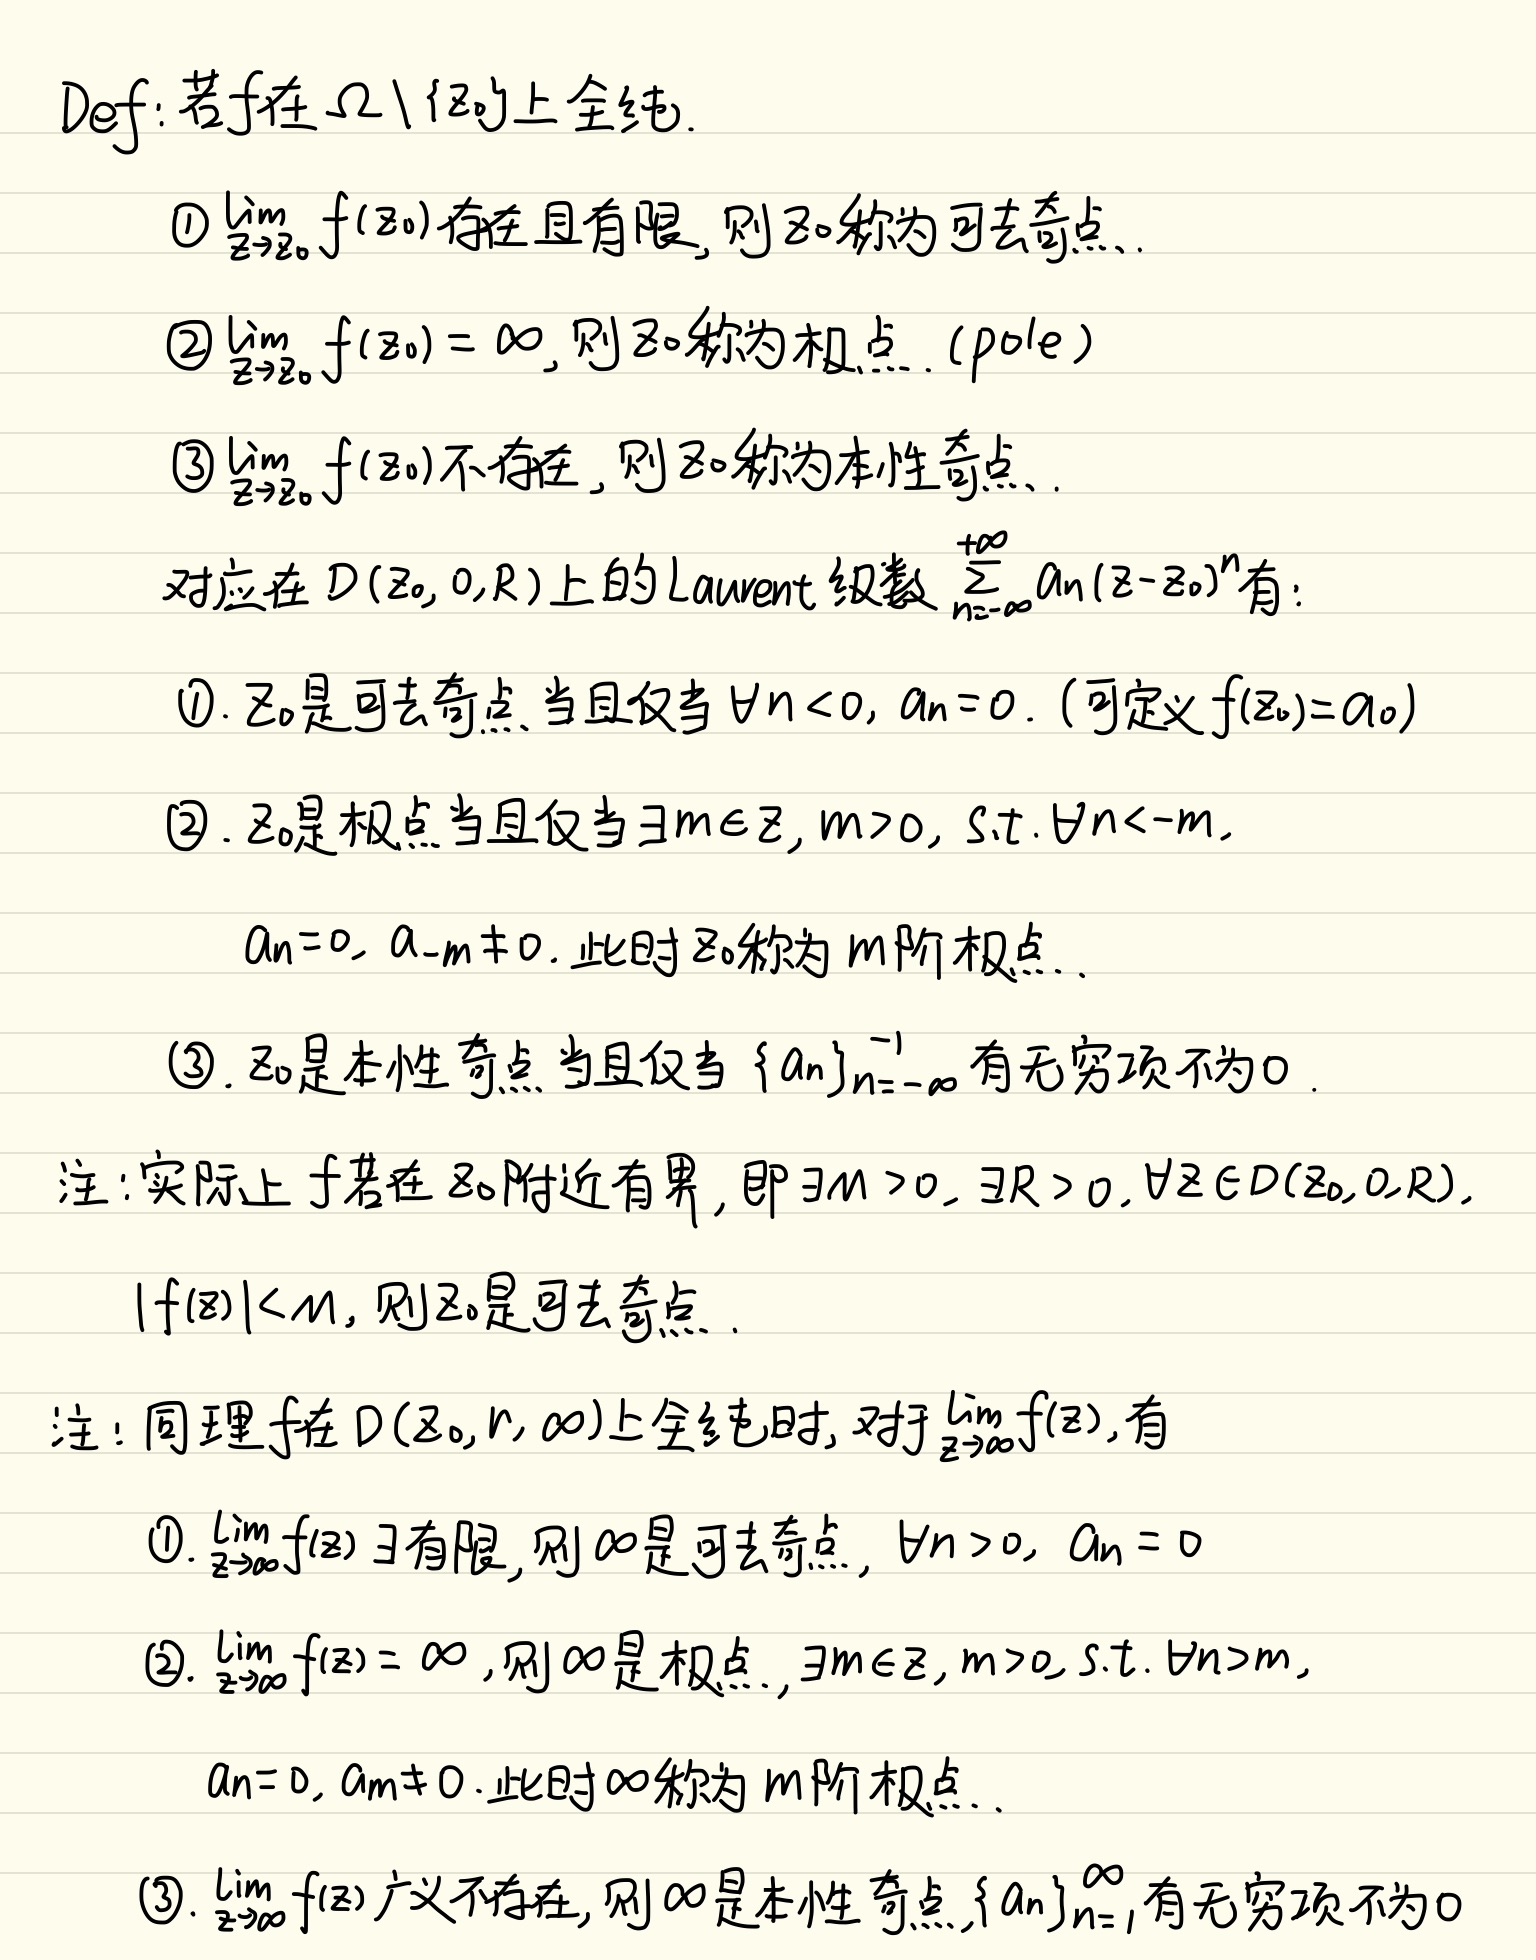 Def: 若f在 Ω\{z₀}上全纯.
① lim_{z→z₀} f(z₀)存在且有限, 则z₀称为可去奇点.
② lim_{z→z₀} f(z₀) = ∞, 则z₀称为极点. (pole)
③ lim_{z→z₀} f(z₀)不存在, 则z₀称为本性奇点.
对应在 D(z₀, 0, R)上的Laurent级数 ∑_{n=-∞}^{+∞} aₙ(z-z₀)ⁿ有:
①. z₀是可去奇点当且仅当 ∀n<0, aₙ=0. (可定义f(z₀)=a₀)
②. z₀是极点当且仅当∃m∈Z, m>0, s.t. ∀n<-m,
aₙ=0, a₋ₘ≠0. 此时z₀称为m阶极点.
③. z₀是本性奇点当且仅当 {aₙ}_{n=-∞}^{-1} 有无穷项不为0.
注: 实际上f若在z₀附近有界, 即∃M>0, ∃R>0, ∀z∈D(z₀,0,R),
|f(z)|<M, 则z₀是可去奇点.
注: 同理f在D(z₀, r, ∞)上全纯时, 对于lim_{z→∞} f(z), 有
①. lim_{z→∞} f(z) ∃有限, 则∞是可去奇点, ∀n>0, aₙ=0
②. lim_{z→∞} f(z) = ∞, 则∞是极点, ∃m∈Z, m>0, s.t. ∀n>m,
aₙ=0, aₘ≠0. 此时∞称为m阶极点.
③. lim_{z→∞} f(z)广义不存在, 则∞是本性奇点, {aₙ}_{n=1}^{∞} 有无穷项不为0